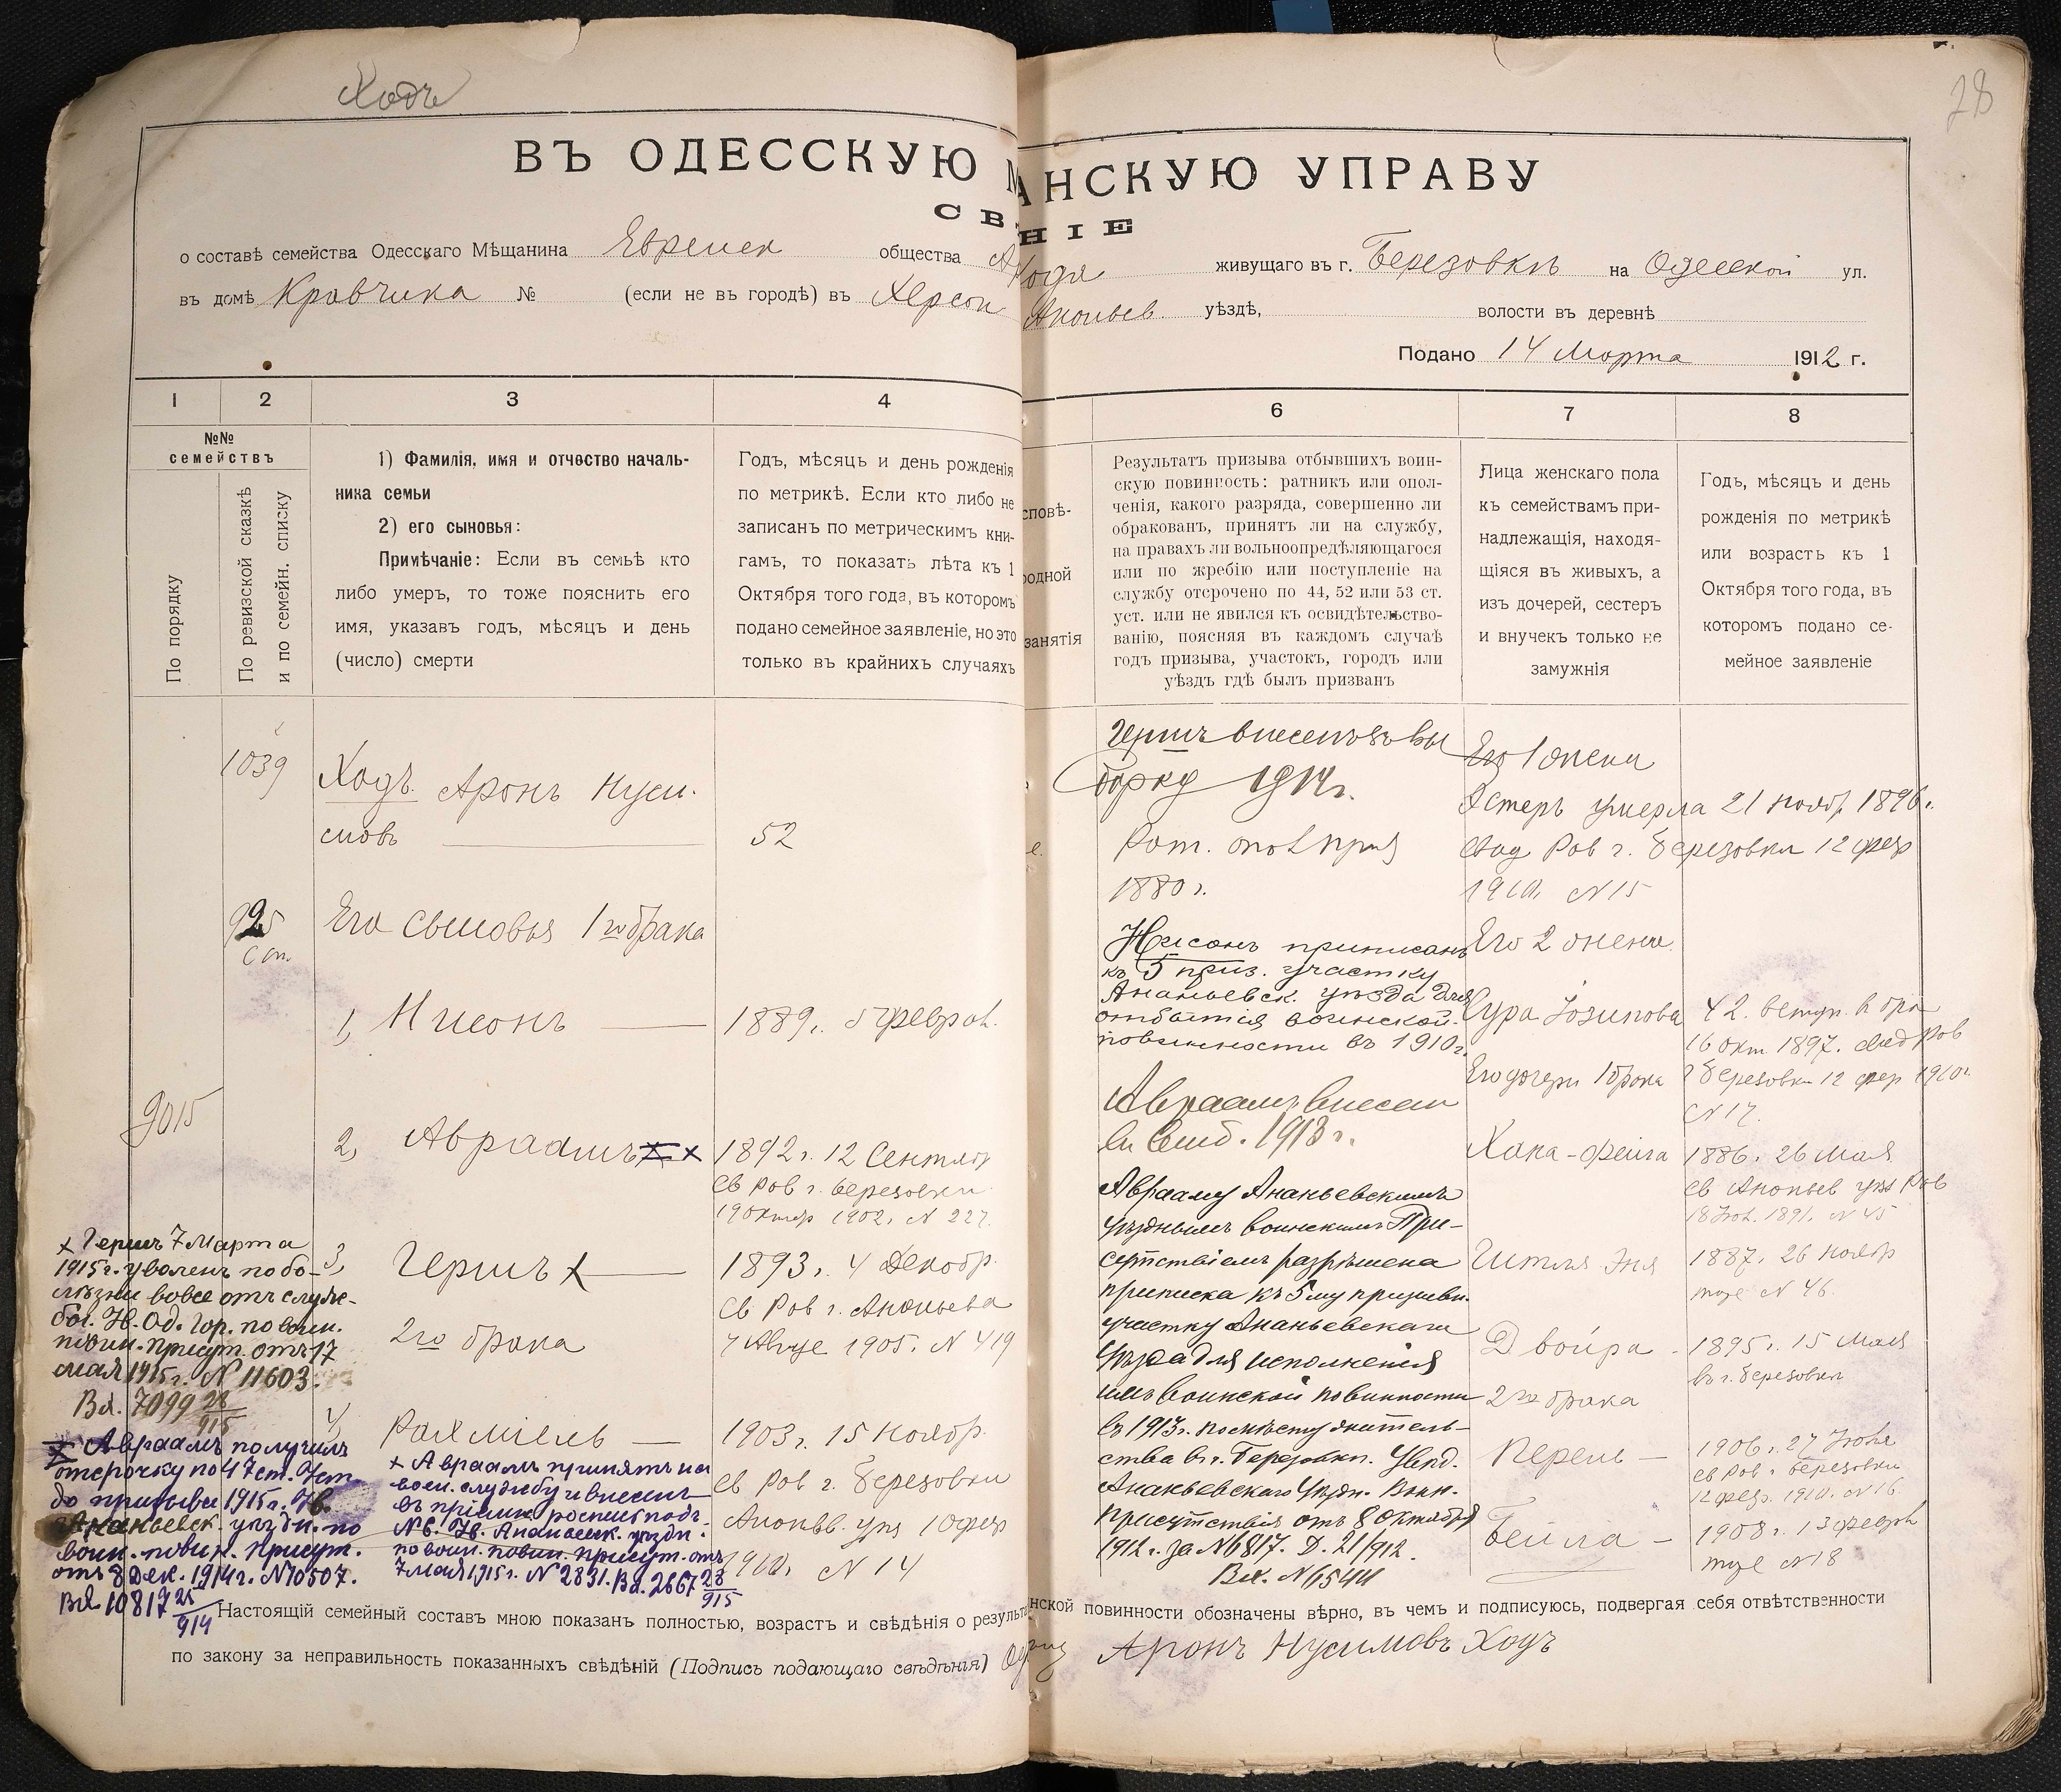 Ходъ
28
ВЪ ОДЕССКУЮ М
АНСКУЮ УПРАВУ
СВ
НІЕ
о составѣ семейства Одесскаго Мѣщанина Евреиск общества А
Ходя живущаго въ г. Березовкѣ на Одесской ул.
въ домѣ Кравчика № (если не въ городѣ) въ Херсон
Ананьев. уѣздѣ, волости въ деревнѣ
Подано 14 Марта 1912 г.
1 2 3 4
6 7 8
№№
семействъ
По порядку
По ревизской сказкѣ
и по семейн. списку
1) Фамилія, имя и отчество началь-
ника семьи
2) его сыновья:
Примѣчаніе: Если въ семьѣ кто
либо умеръ, то тоже пояснить его
имя, указавъ годъ, мѣсяцъ и день
(число) смерти
Годъ, мѣсяцъ и день рожденія
по метрикѣ. Если кто либо не
записанъ по метрическимъ кни-
гамъ, то показать лѣта къ 1
Октября того года, въ которомъ
подано семейное заявленіе, но это
только въ крайнихъ случаяхъ
сповѣ-
родной
занятія
Результатъ призыва отбывшихъ воин-
скую повинность: ратникъ или опол-
ченія, какого разряда, совершенно ли
обракованъ, принятъ ли на службу,
на правахъ ли вольноопредѣляющагося
или по жребію или поступленіе на
службу отсрочено по 44, 52 или 53 ст.
уст. или не явился къ освидѣтельство-
ванію, поясняя въ каждомъ случаѣ
годъ призыва, участокъ, городъ или
уѣздъ гдѣ былъ призванъ
Лица женскаго пола
къ семействамъ при-
надлежащія, находя-
щіяся въ живыхъ, а
изъ дочерей, сестеръ
и внучек только не
замужнія
Годъ, мѣсяцъ и день
рожденія по метрикѣ
или возрастъ къ 1
Октября того года, въ
которомъ подано се-
мейное заявленіе
1039
Ходъ Аронъ Нуси-
мовъ
52
925
ст.
Его сыновья 1го брака
1, Нисонъ 1889г. 5 феврал.
9015
2, Авраамъ х х 1892г. 12 Сентябр
св Рав г. Березовки
19 Октяб 1902. N 227.
3, Гершъ х 1893г. 4 Декабр.
св Рав г. Ананьева
2го брака
4 Авгус 1905. N 419
4, Рахміель 1903г. 15 Ноябр.
св Рав г. Березовки
Ананьев. уѣз 10 фев
1910г. N 14
х Гершъ 7 Марта
1915г. уволенъ по бо-
лѣзни вовсе отъ служ-
бы. Ув. Од. Гор. по воин.
повин. присут. отъ 17
мая 1915г. N 11603.
Вх. 7099 28/915
х Авраамъ получилъ
отсрочку по 47 ст. Уст.
до призыва 1915г. Ув.
Ананьевск. уѣздн. по
воин. повин. присут.
отъ 8 Дек. 1914г. N 10507.
Вх 10817 25/914
х Авраамъ принятъ на
воен. службу и внесенъ
въ пріемн. роспись подъ
N 6. Ув. Ананьевск. уѣздн.
по воин. повин. присут. отъ
7 мая 1915г. N 2831. Вх. 2667 28/915
Гершъ внесенъ въ вы
борку 1914г.
Рат. опол прия
1880г.
Нисонъ приписанъ
къ 5 приз. участку
Ананьевск. уѣзда для
отбытія воинской
повинности въ 1910г.
Авраамъ внесен
въ 1913г.
Аврааму Ананьевскимъ
Уѣзднымъ воинскимъ При-
сутствіемъ разрѣшена
приписка къ 5му призывн.
участку Ананьевскаго
Уѣзда для исполненія
имъ воинской повинности
въ 1913г. по мѣсту житель-
ства въ г. Березовкѣ. Увед.
Ананьевскаго Уѣздн. Воин.
Присутствія отъ 8 октября
1912г. за N 6817. Д. 21/912.
Вх. N 6544
Его 1 жена
Эстеръ умерла 21 ноябр. 1896г.
свид Рав г. Березовки 12 фев
1910г. N 15
Его 2 жена
Сура Іозипова 42. вступ. в бра
16 окт 1897. свид Рав
г Березовки 12 фев 1910г.
N 17.
Его дочери 1 брака
Хана-Фейга 1886г. 26 Мая
св Ананьев уѣз Рав
18 Іюл. 1891. N 45
Гитля Эня 1887г. 26 Ноябр
тоже N 46.
Двойра 1895г. 15 Мая
въ г. Березовки
2го брака
Перель 1906г. 27 Іюня
св Рав г Березовки
12 февр. 1910. N 16.
Бейла 1908г. 13 февраля
тоже N 18
Настоящій семейный составъ мною показанъ полностью, возрастъ и свѣдѣнія о результа
нской повинности обозначены вѣрно, въ чемъ и подписуюсь, подвергая себя отвѣтственности
по закону за неправильность показанныхъ свѣдѣній (Подпись подающаго свѣдѣнія)
Аронъ Нусимовъ Ходъ